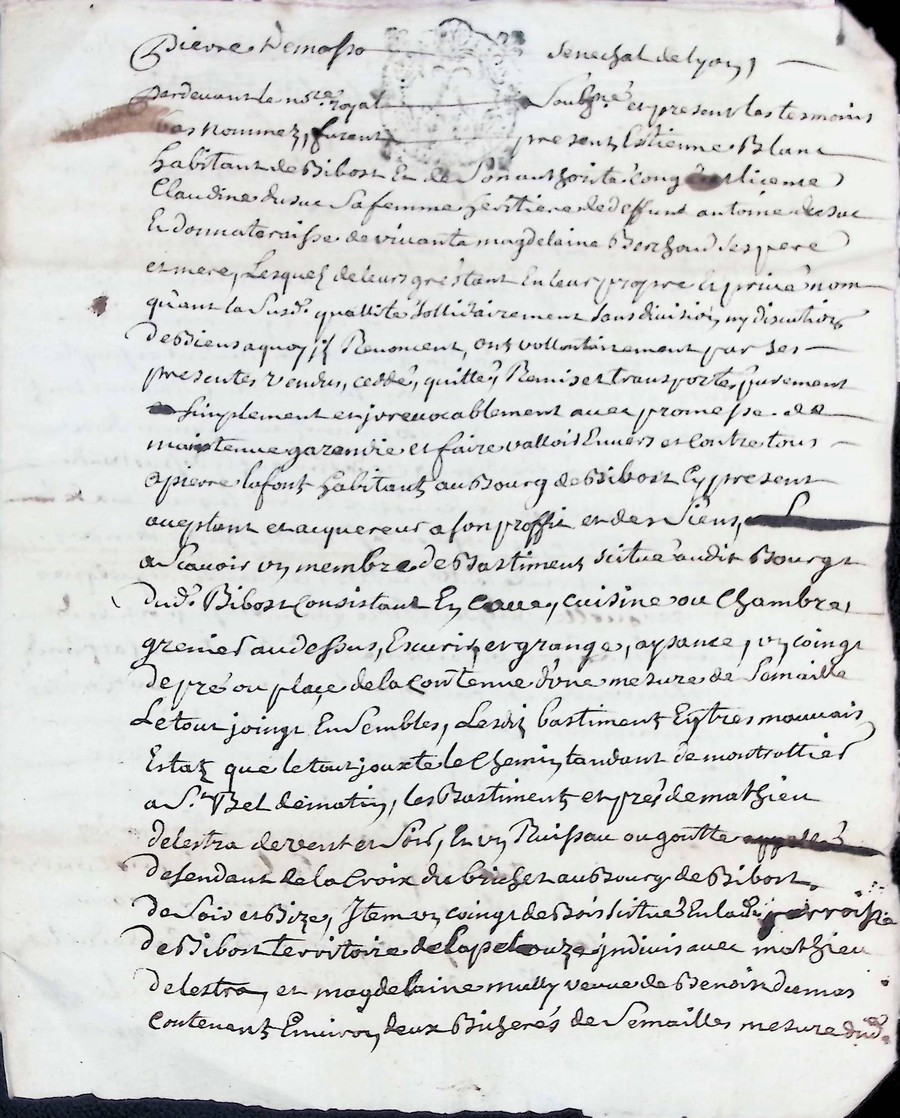 Pierre Demasso senechal de lyon,
Pardevant le no.re royal Soubs.né et present les tesmoins
bas nommez, furent present Estienne Blanc
habitant de Bibost Et de Son authorité congé et licence
Claudine dusuc Sa femme heritiere de deffunt antoine dusuc
Et donnataraisse de vivante magdelaine Berchoud Ses pere
et mere, Lesquelz de leurs gré estant En leur propre Et privé nom
qu'ant la Susd.e quallité Sollidairement Sans division ny discution
de Biens a quoy jlz Renoncent, ont vollontairement par Ses
presentes vendus, ceddé, quitté, Remis et transportés purement
Simplement et jrevocablement avec promesse de
maintenue garendie et faire valloir Envers et contre tous
a pierre lafont habitant au Bourg de Bibost Cy present
aceptant et acquereur a son proffit et des Siens,
a Scavoir un membre de Bastiment scitué audit Bourgt
dud.t Bibost Consistant En Cave, cuisine ou Chambre,
grenier au dessus, Escurie, et grange, aysance, un coingt
de pré ou place de la Contenue d'une mesure de Semaille
Le tout joingt En Sembles, Lesdit bastiment En tres mauvais
Estat que le tout jouxte le Chemin tandant de montrottier
a S.t Bel de matin, les Bastiment et prés de mathieu
delestra de vent et Soir, Et un Ruissau ou goutte
desendant de la Croix du brichet au Bourg de Bibost
de Soir et Bize, Jtem un coingt de Bois scitué En lad.e parroisse
de Bibost territoire de la pelouze jndivis avec mathieu
delestra, et magdelaine mully veuve de Benoist dumas
Contenant Environ deux Bicherés de Semailles mesure dud.